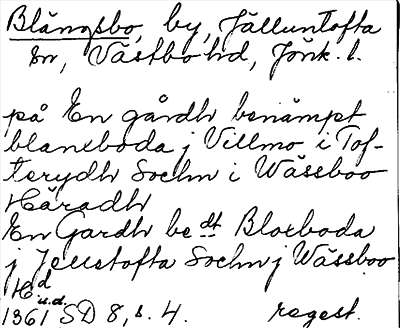 Blångsbo, by, Jälluntofta
sn, Västbo hd, Jönk. l.
på En gårdh benämpt
blanxboda j Villmo i Tof-
terydh Sochn i Wässboo
Häradh
En Gardh be:dt Bloxboda
j Jellstofta Sochn j Wässboo
Hd
u.d.
1361 SD 8, s. 4. regest.